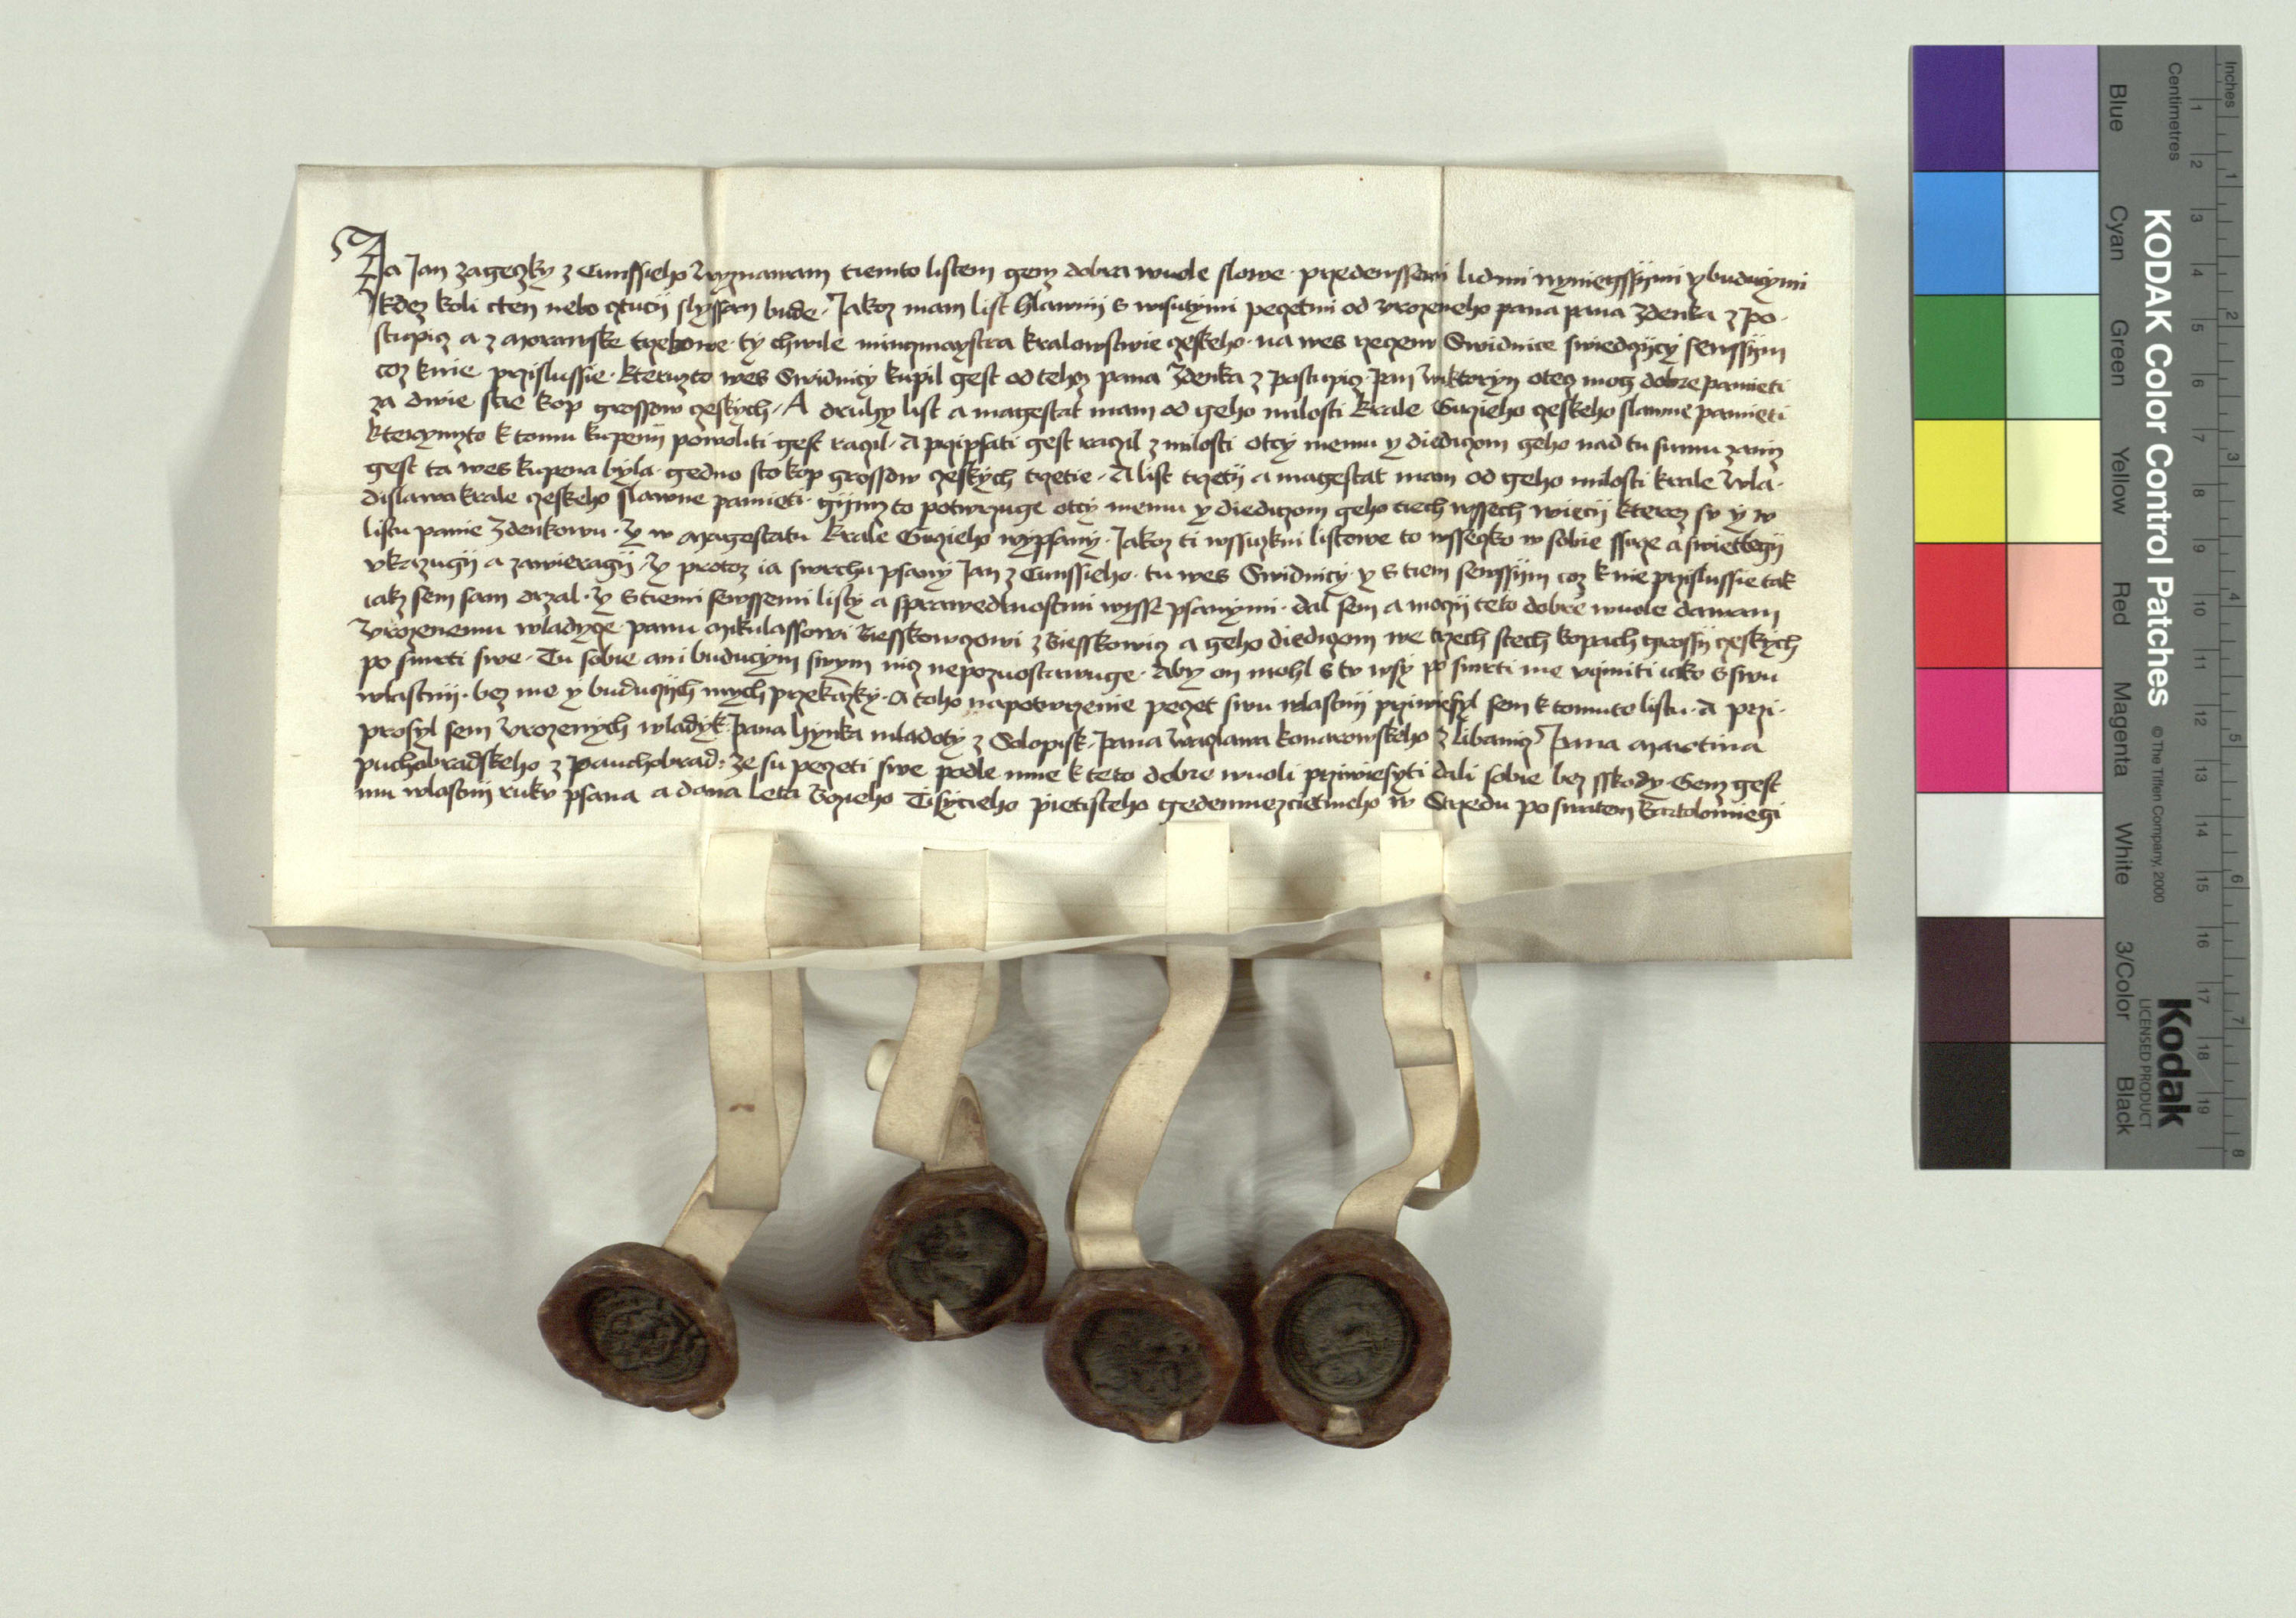 Ja Jan Zageczky z Cunssieho Wyznawam tiemto listem genz dobra wuole slowe · przedewssemi lidmi nyniegssijmi y buducymi
kdez koli cten nebo cztucij slyssan bude · Jakoz mam list hlawnij s wisutymi peczetmi od Urozeneho pana pana Zdenka z Po-
stupicz a z Morawske trzebowe · ty chwile minczmaystra kralowstwie czeskeho · na wes rzeczenu Swidnice swiedczijcy sewssijm
coz knie przislussie · kteruzto wes Swidnicy kupil gest od tehoz pana Zdenka z Postupicz · Jan Wiktoryn otecz mog dobre pamieti
za dwie stie kop grossow czeskych · A druhy list a magestat mam od geho milosti krale Girzieho czeskeho slawne pamieti
kterymzto k tomu kupenij powoliti gest raczil · A przipsati gest raczil z milosti otcy memu y diediczom geho nad tu sumu zaniz
gest ta wes kupena byla · gedno sto kop grossow czeskych trzetie · A list trzetij a magestat mam od geho milosti krale Wla-
dislawa krale czeskeho slawne pamieti · gijmz to potwrzuge otcy memu y diediczom geho tiech wssech wiecij kterez su y w
listu panie Zdenkowu · Y w Magestatu krale Girzieho wypsany · Jakoz ti wssiczkni listowe to wsseczko w sobie ssirze a swietlegij
ukazugij a zawieragij · Y protoz ia swrchu psany Jan z Cunssieho · tu wes Swidnicy · y s tiem sewssijm coz k nie przislussie tak
iakz sem sam drzal · Y s tiemi sewssemi listy a sprawedlnostmi wysse psanymi · dal sem a mocij teto dobre wuole dawam
Urozenemu wladyce panu Mikulassowi Biesskowczowi z Biesskowicz a geho diediczom we trzech stech kopach grossij czeskych
po smrti swe · Tu sobie ani buducym swym nicz nepozuostawuge · Aby on mohl s tu wsy po smrti me uczиniti iako s swu
wlastnij · bez me y buduczijch mych przekazky · A toho napotwrzenie peczet swu wlastnij prziwiesyl sem k tomuto listu · A przi-
prosyl sem Urozenych wladyk · Pana Hynka mladoty z Solopisk · Pana Waczlawa konarowskeho z Libanicz Pana Martina
puchobradskeho z Pauchobrad : Ze su peczeti swe podle mne k teto dobre wuoli przwiesyti dali sobie bez sskody · Genz gest
mu wlastnij ruku psana a dana Leta Bozieho Tisycieho pietisteho gedenmezcietmeho w Strzedu po swatem Bartolomiegi
KODAK Color Control Patches
© The Tiffen Company, 2000
Kodak
LICENSED PRODUCT
Blue Cyan Green Yellow Red Magenta White 3/Color Black
Inches 1 2 3 4 5 6 7 8
Centimetres 1 2 3 4 5 6 7 8 9 10 11 12 13 14 15 16 17 18 19